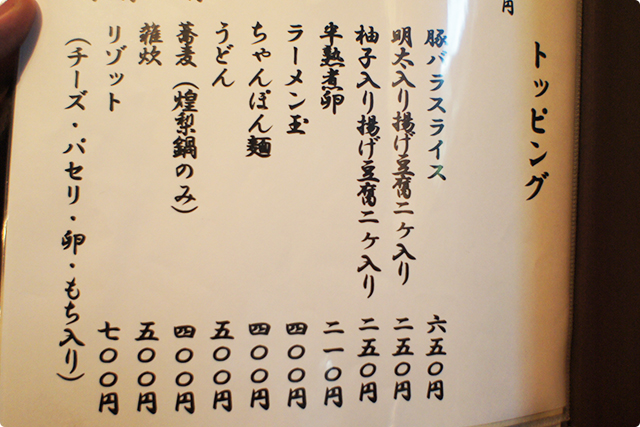 円
トッピング
豚バラスライス 六五〇円
明太入り揚げ豆腐二ヶ入り 二五〇円
柚子入り揚げ豆腐二ヶ入り 二五〇円
半熟煮卵 二一〇円
ラーメン玉 四〇〇円
ちゃんぽん麺 四〇〇円
うどん 五〇〇円
蕎麦（煌梨鍋のみ） 四〇〇円
雑炊 五〇〇円
リゾット 七〇〇円
（チーズ・パセリ・卵・もち入り）